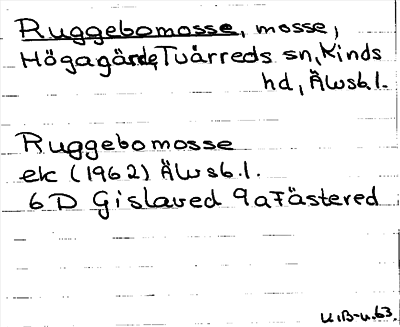 Ruggebomosse, mosse,
Högagärde, Tvärreds sn, Kinds
hd, Älvsb.l.
Ruggebomosse
ek (1962) Älvsb.l.
6D Gislaved 9a Fästered
U.B-u.63.